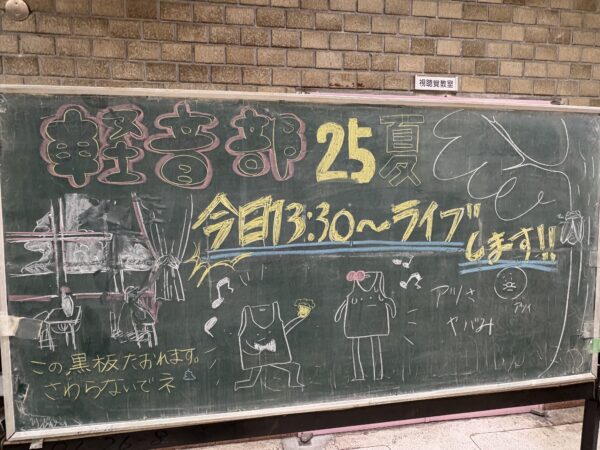 視聴覚教室
軽音部 25 夏
今日13:30～ライブ
します!!
アツさ
ヤバみ
アツイ
この黒板たおれます。
さわらないでネ